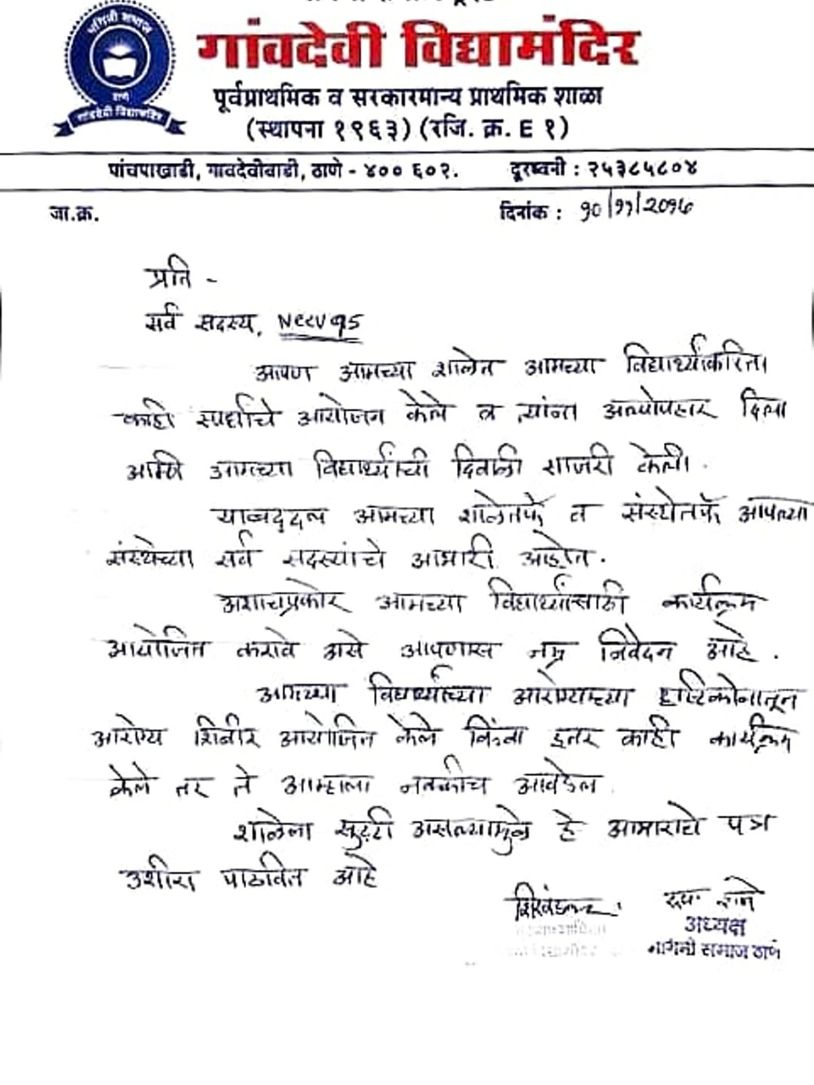 भगिनी समाज
ठाणे
गांवदेवी विद्यामंदिर
गांवदेवी विद्यामंदिर
पूर्वप्राथमिक व सरकारमान्य प्राथमिक शाळा
(स्थापना १९६३) (रजि. क्र. E १)
पांचपाखाडी, गावदेवीवाडी, ठाणे - ४०० ६०२. दूरध्वनी : २५३८५८०४
जा.क्र. दिनांक :
प्रति -
सर्व सदस्य, Neev95
आपण आमच्या शाळेत आमच्या विद्यार्थ्यांकरिता
काही स्पर्धांचे आयोजन केले व त्यांना अल्पोपहार दिला
आणि आमच्या विद्यार्थ्यांची दिवाळी साजरी केली.
याबद्दल आमच्या शाळेतर्फे व संस्थेतर्फे आपल्या
संस्थेच्या सर्व सदस्यांचे आभारी आहोत.
अशाचप्रकारे आमच्या विद्यार्थ्यांसाठी कार्यक्रम
आयोजित करावे असे आपणास नम्र निवेदन आहे.
आमच्या विद्यार्थ्यांच्या आरोग्याच्या दृष्टिकोनातून
आरोग्य शिबीर आयोजित केले किंवा इतर काही कार्यक्रम
केले तर ते आम्हाला नक्कीच आवडेल.
शाळेला सुट्टी असल्यामुळे हे आभाराचे पत्र
उशीरा पाठवित आहे
अध्यक्ष
भगिनी समाज ठाणे